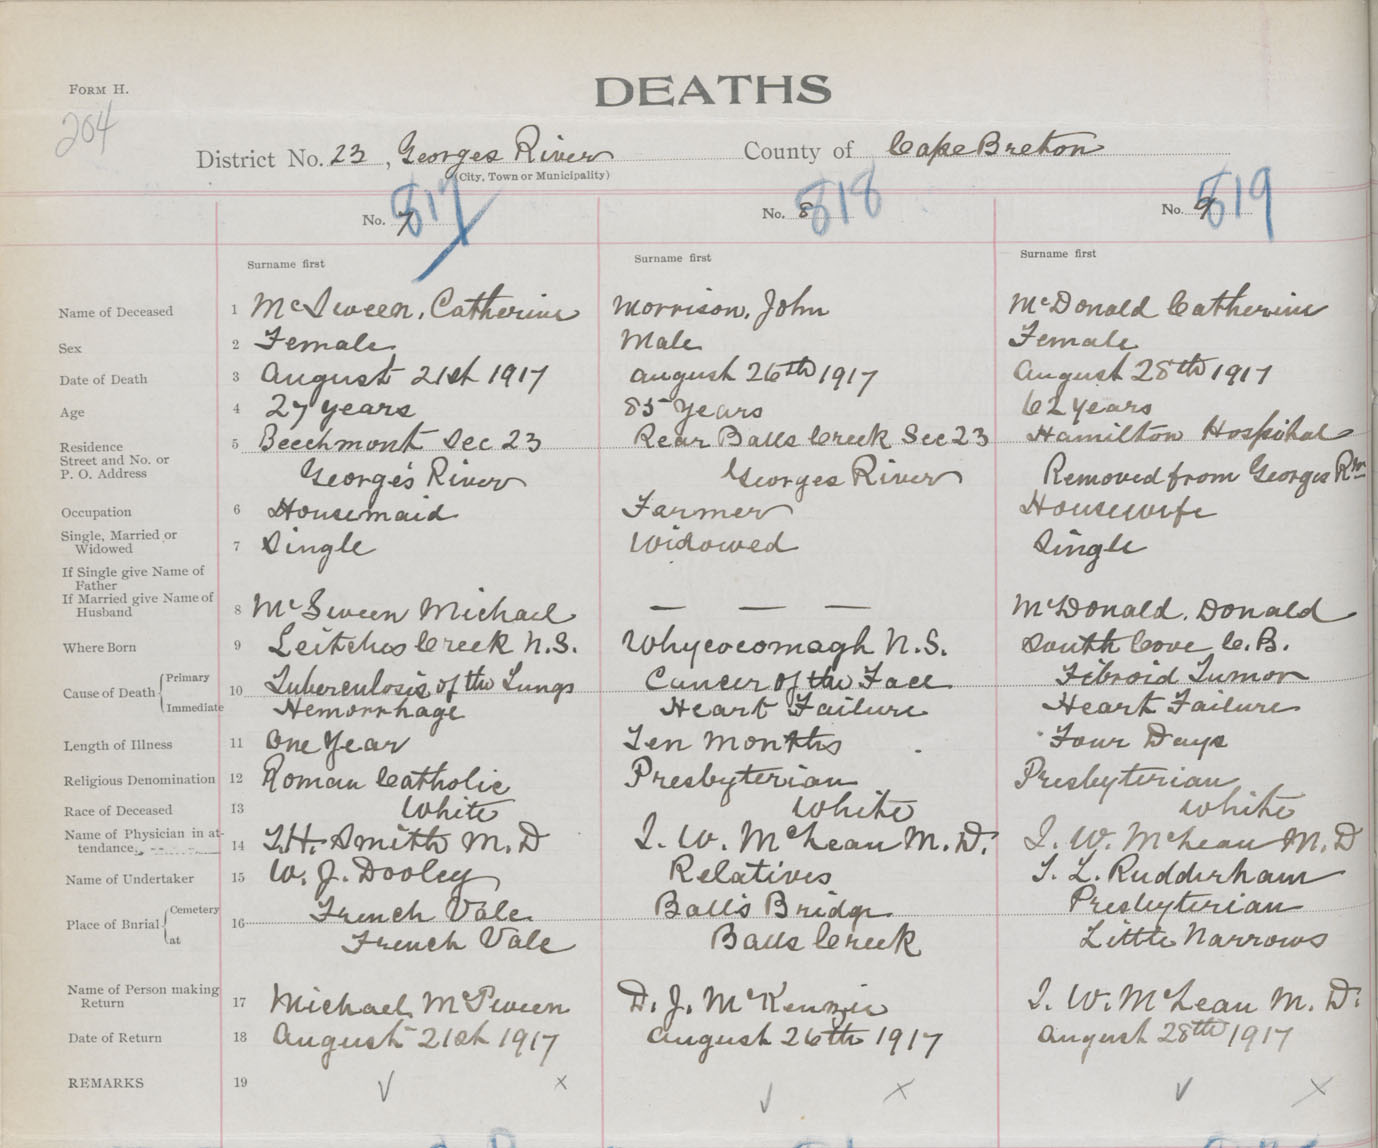 FORM H.
DEATHS
204
District No. 23, Georges River County of Cape Breton
(City, Town or Municipality)
No. 7 817 No. 8 818 No. 9 819
Surname first Surname first Surname first
Name of Deceased 1 McSween, Catherine Morrison, John McDonald Catherine
Sex 2 Female Male Female
Date of Death 3 August 21st 1917 august 26th 1917 august 28th 1917
Age 4 27 years 85 Years 62 years
Residence Street and No. or P. O. Address 5 Beechmont Sec 23 Rear Balls Creek Sec 23 Hamilton Hospital
George's River Georges River Removed from Georges Rvr
Occupation 6 Housemaid Farmer Housewife
Single, Married or Widowed 7 Single Widowed Single
If Single give Name of Father
If Married give Name of Husband 8 McSween Michael — — — McDonald. Donald
Where Born 9 Leitches Creek N.S. Whycocomagh N.S. South Cove C.B.
Cause of Death { Primary 10 Tuberculosis of the Lungs Cancer of the Face Fibroid Tumor
Immediate Hemorrhage Heart Failure Heart Failure
Length of Illness 11 One Year Ten Months Four Days
Religious Denomination 12 Roman Catholic Presbyterian Presbyterian
Race of Deceased 13 White White White
Name of Physician in attendance 14 T.H. Smith M.D I. W. McLean M.D. I. W. McLean M.D
Name of Undertaker 15 W. J. Dooley Relatives T. L. Rudderham
Place of Burial { Cemetery 16 French Vale Ball's Bridge Presbyterian
at French Vale Balls Creek Little Narrows
Name of Person making Return 17 Michael McSween D. J. McKenzie I. W. McLean M.D.
Date of Return 18 August 21st 1917 august 26th 1917 august 28th 1917
REMARKS 19 √ x √ x √ x